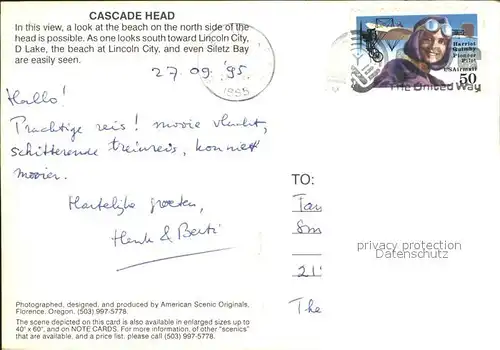 CASCADE HEAD
In this view, a look at the beach on the north side of the
head is possible. As one looks south toward Lincoln City,
D Lake, the beach at Lincoln City, and even Siletz Bay
are easily seen.
27 09 '95.
1995
Harriet
Quimby
Pioneer
Pilot
USAirmail
50
The United Way
Hallo!
Prachtige reis! mooie vlucht,
schitterende treinreis, kon niet
mooier.
Hartelijke groeten,
Henk & Berti
TO:
Fam
Sm
21
The
privacy protection
Ansichtskarten-Center.de
Photographed, designed, and produced by American Scenic Originals,
Florence, Oregon. (503) 997-5778.
The scene depicted on this card is also available in enlarged sizes up to
40" x 60", and on NOTE CARDS. For more information, of other "scenics"
that are available, and a price list, please call (503) 997-5778.